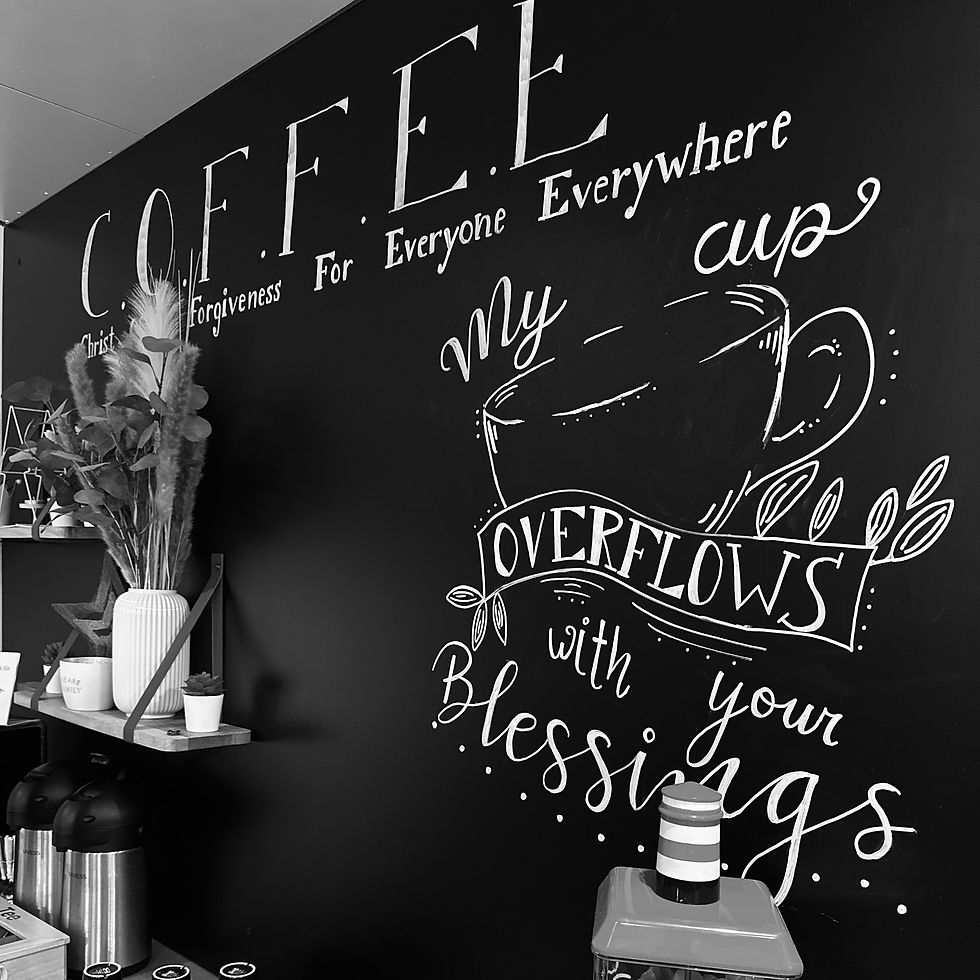 C.O.F.F.E.E
Christ Forgiveness For Everyone Everywhere
My cup
OVERFLOWS
with your
Blessings
WE ARE
FAMILY
Tee